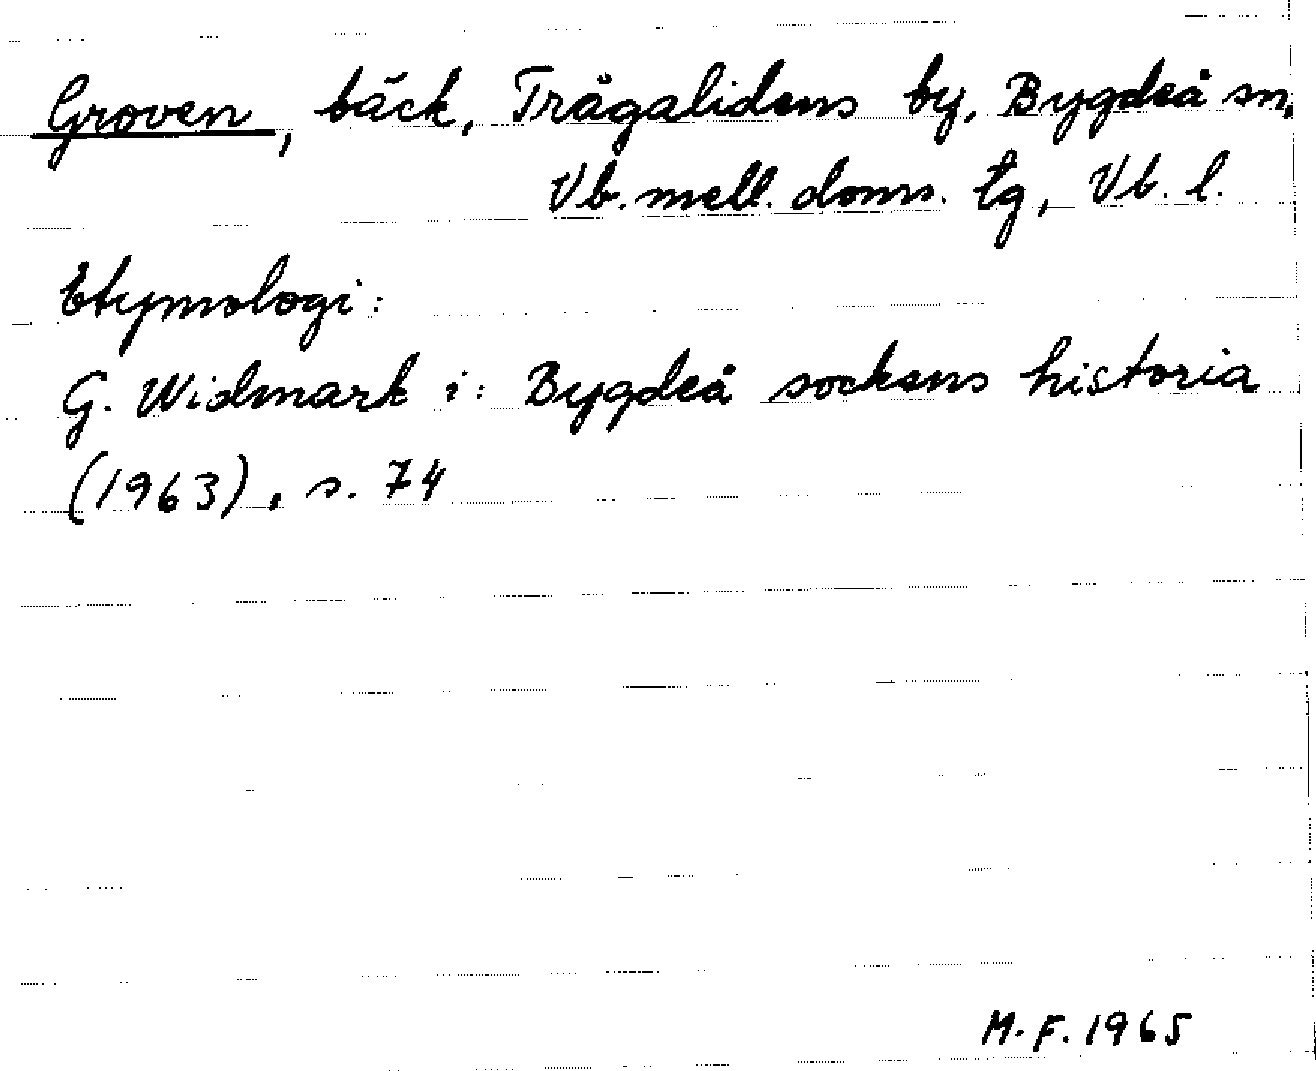 Groven, bäck, Trågalidens by, Bygdeå sn,
Vb. mell. doms. tg, Vb. l.
Etymologi:
G. Widmark i: Bygdeå sockens historia
(1963), s. 74
M.F. 1965